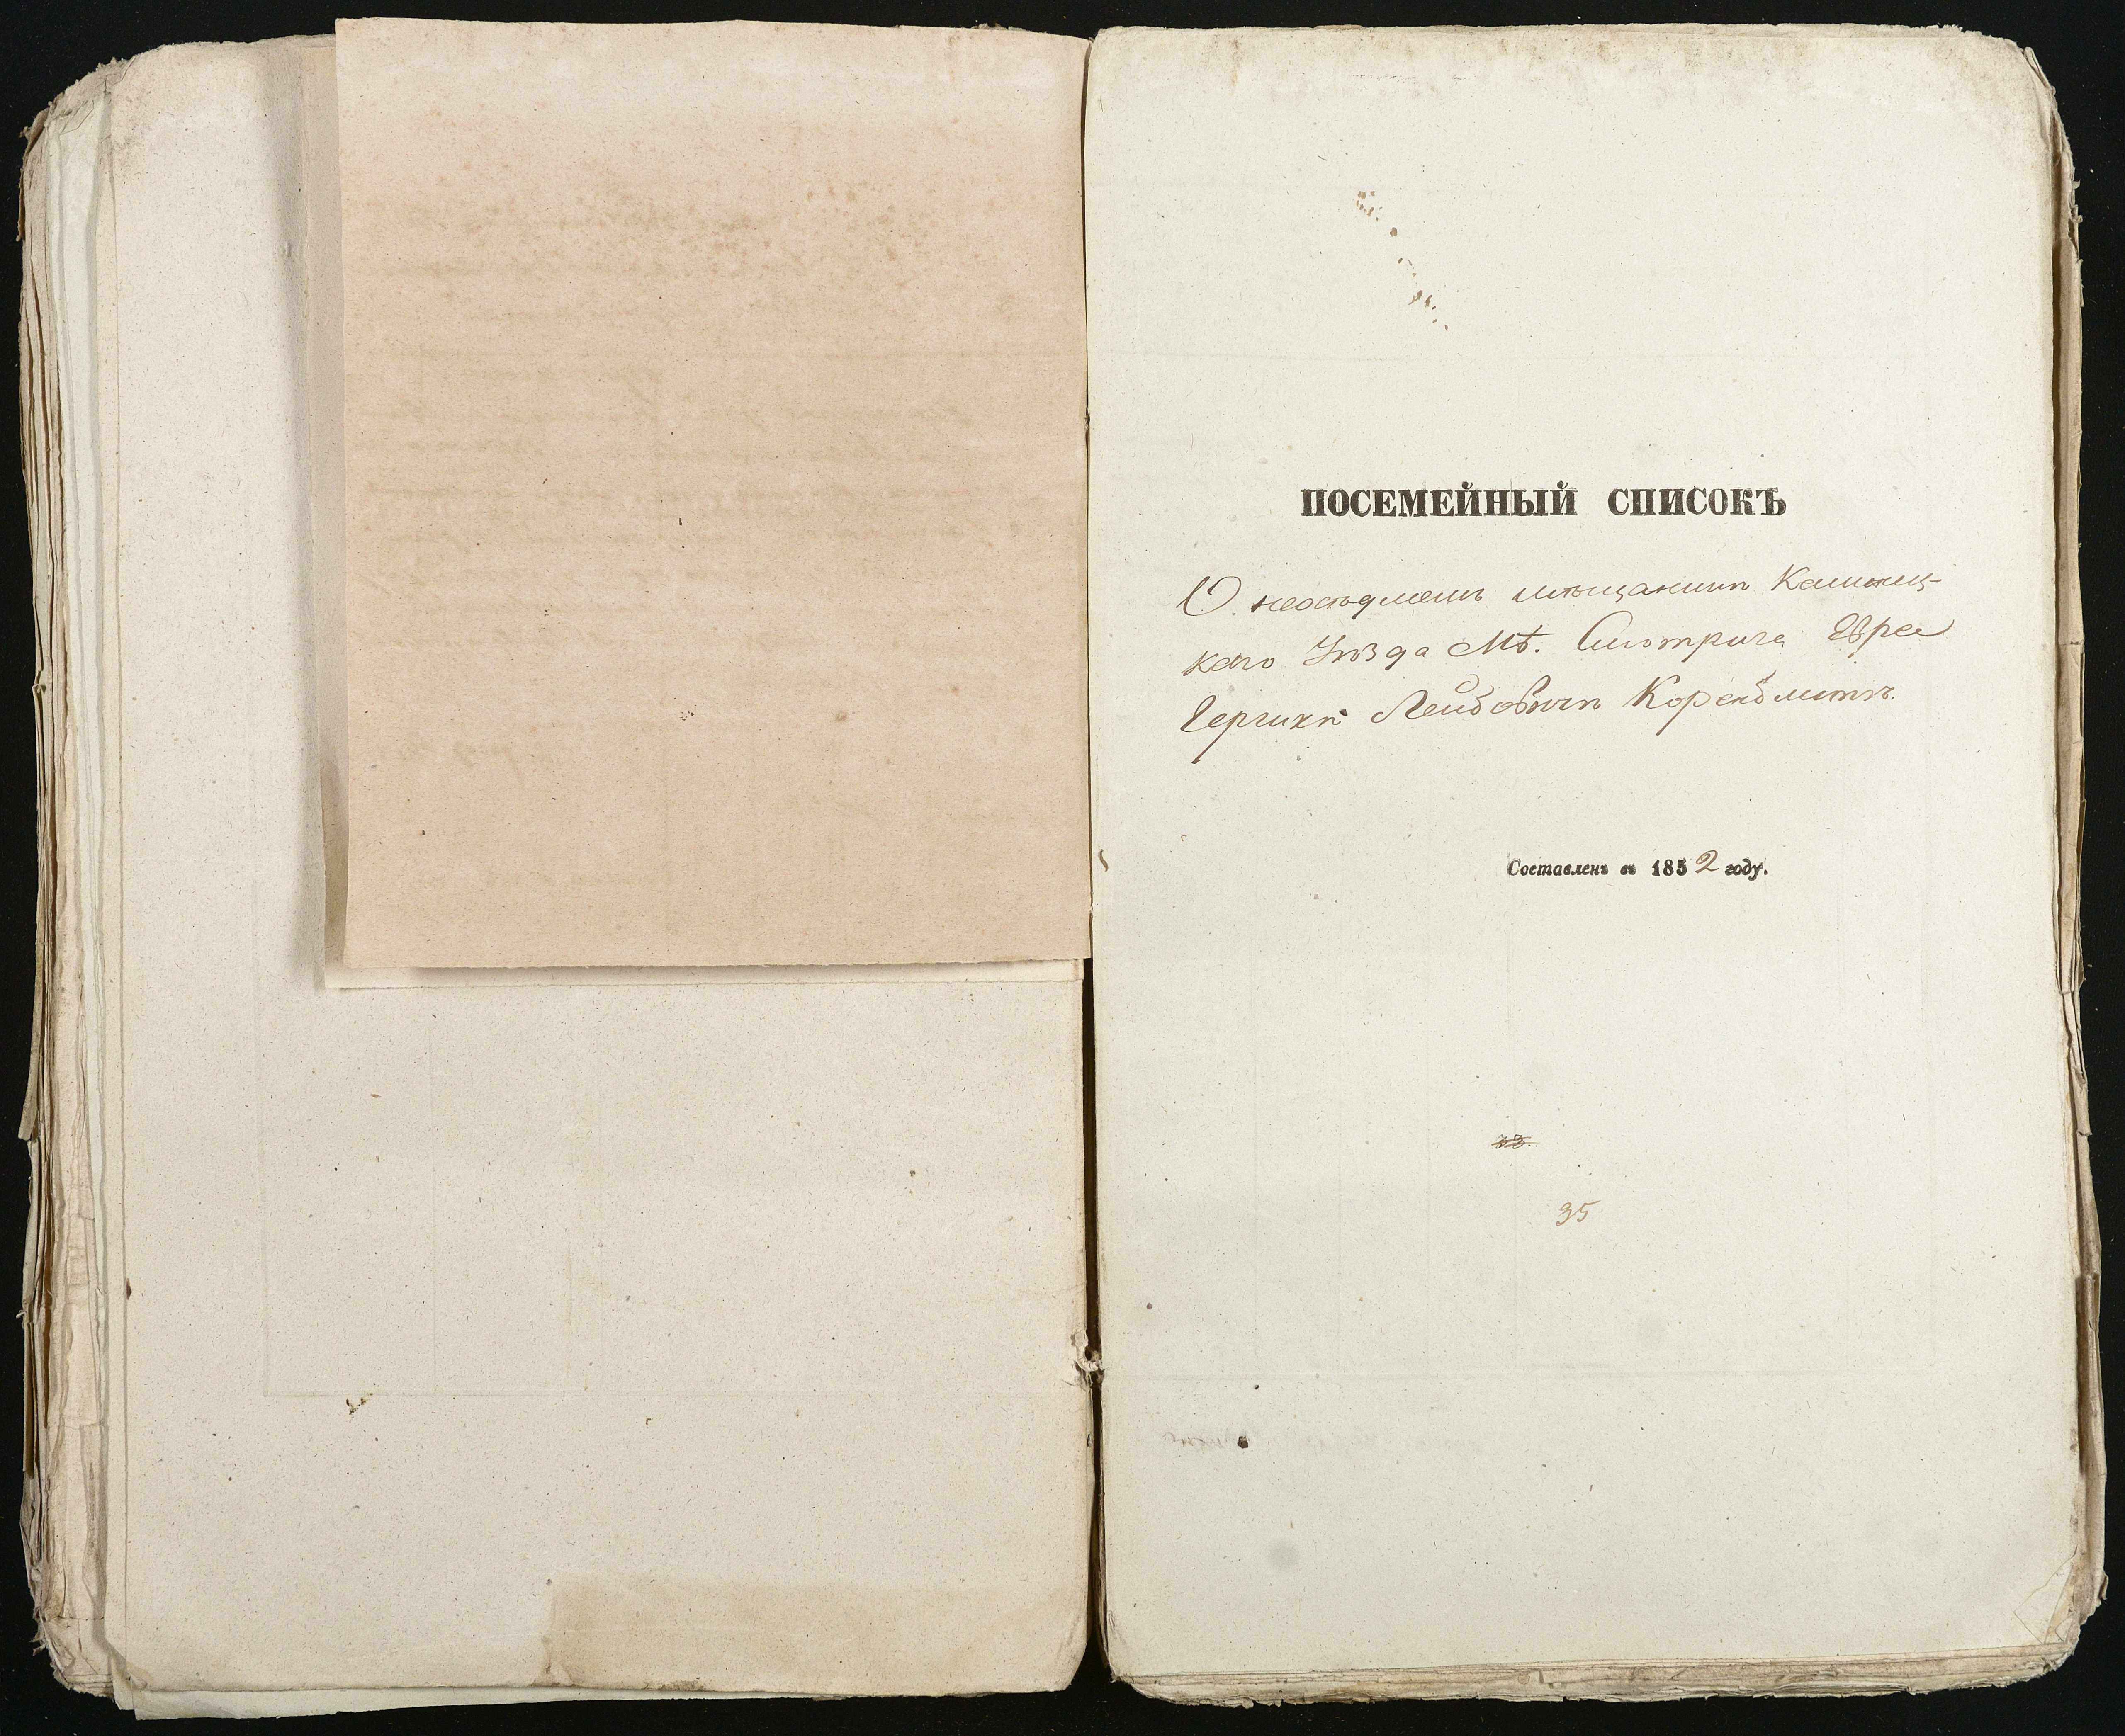 ПОСЕМЕЙНЫЙ СПИСОКЪ
О неосѣдломъ мѣщанинѣ Каменец-
каго Уѣзда Мѣ. Смотрича Еврее
Гершкѣ Лейбовичѣ Корен
Составленъ въ 1852 году.
33.
35